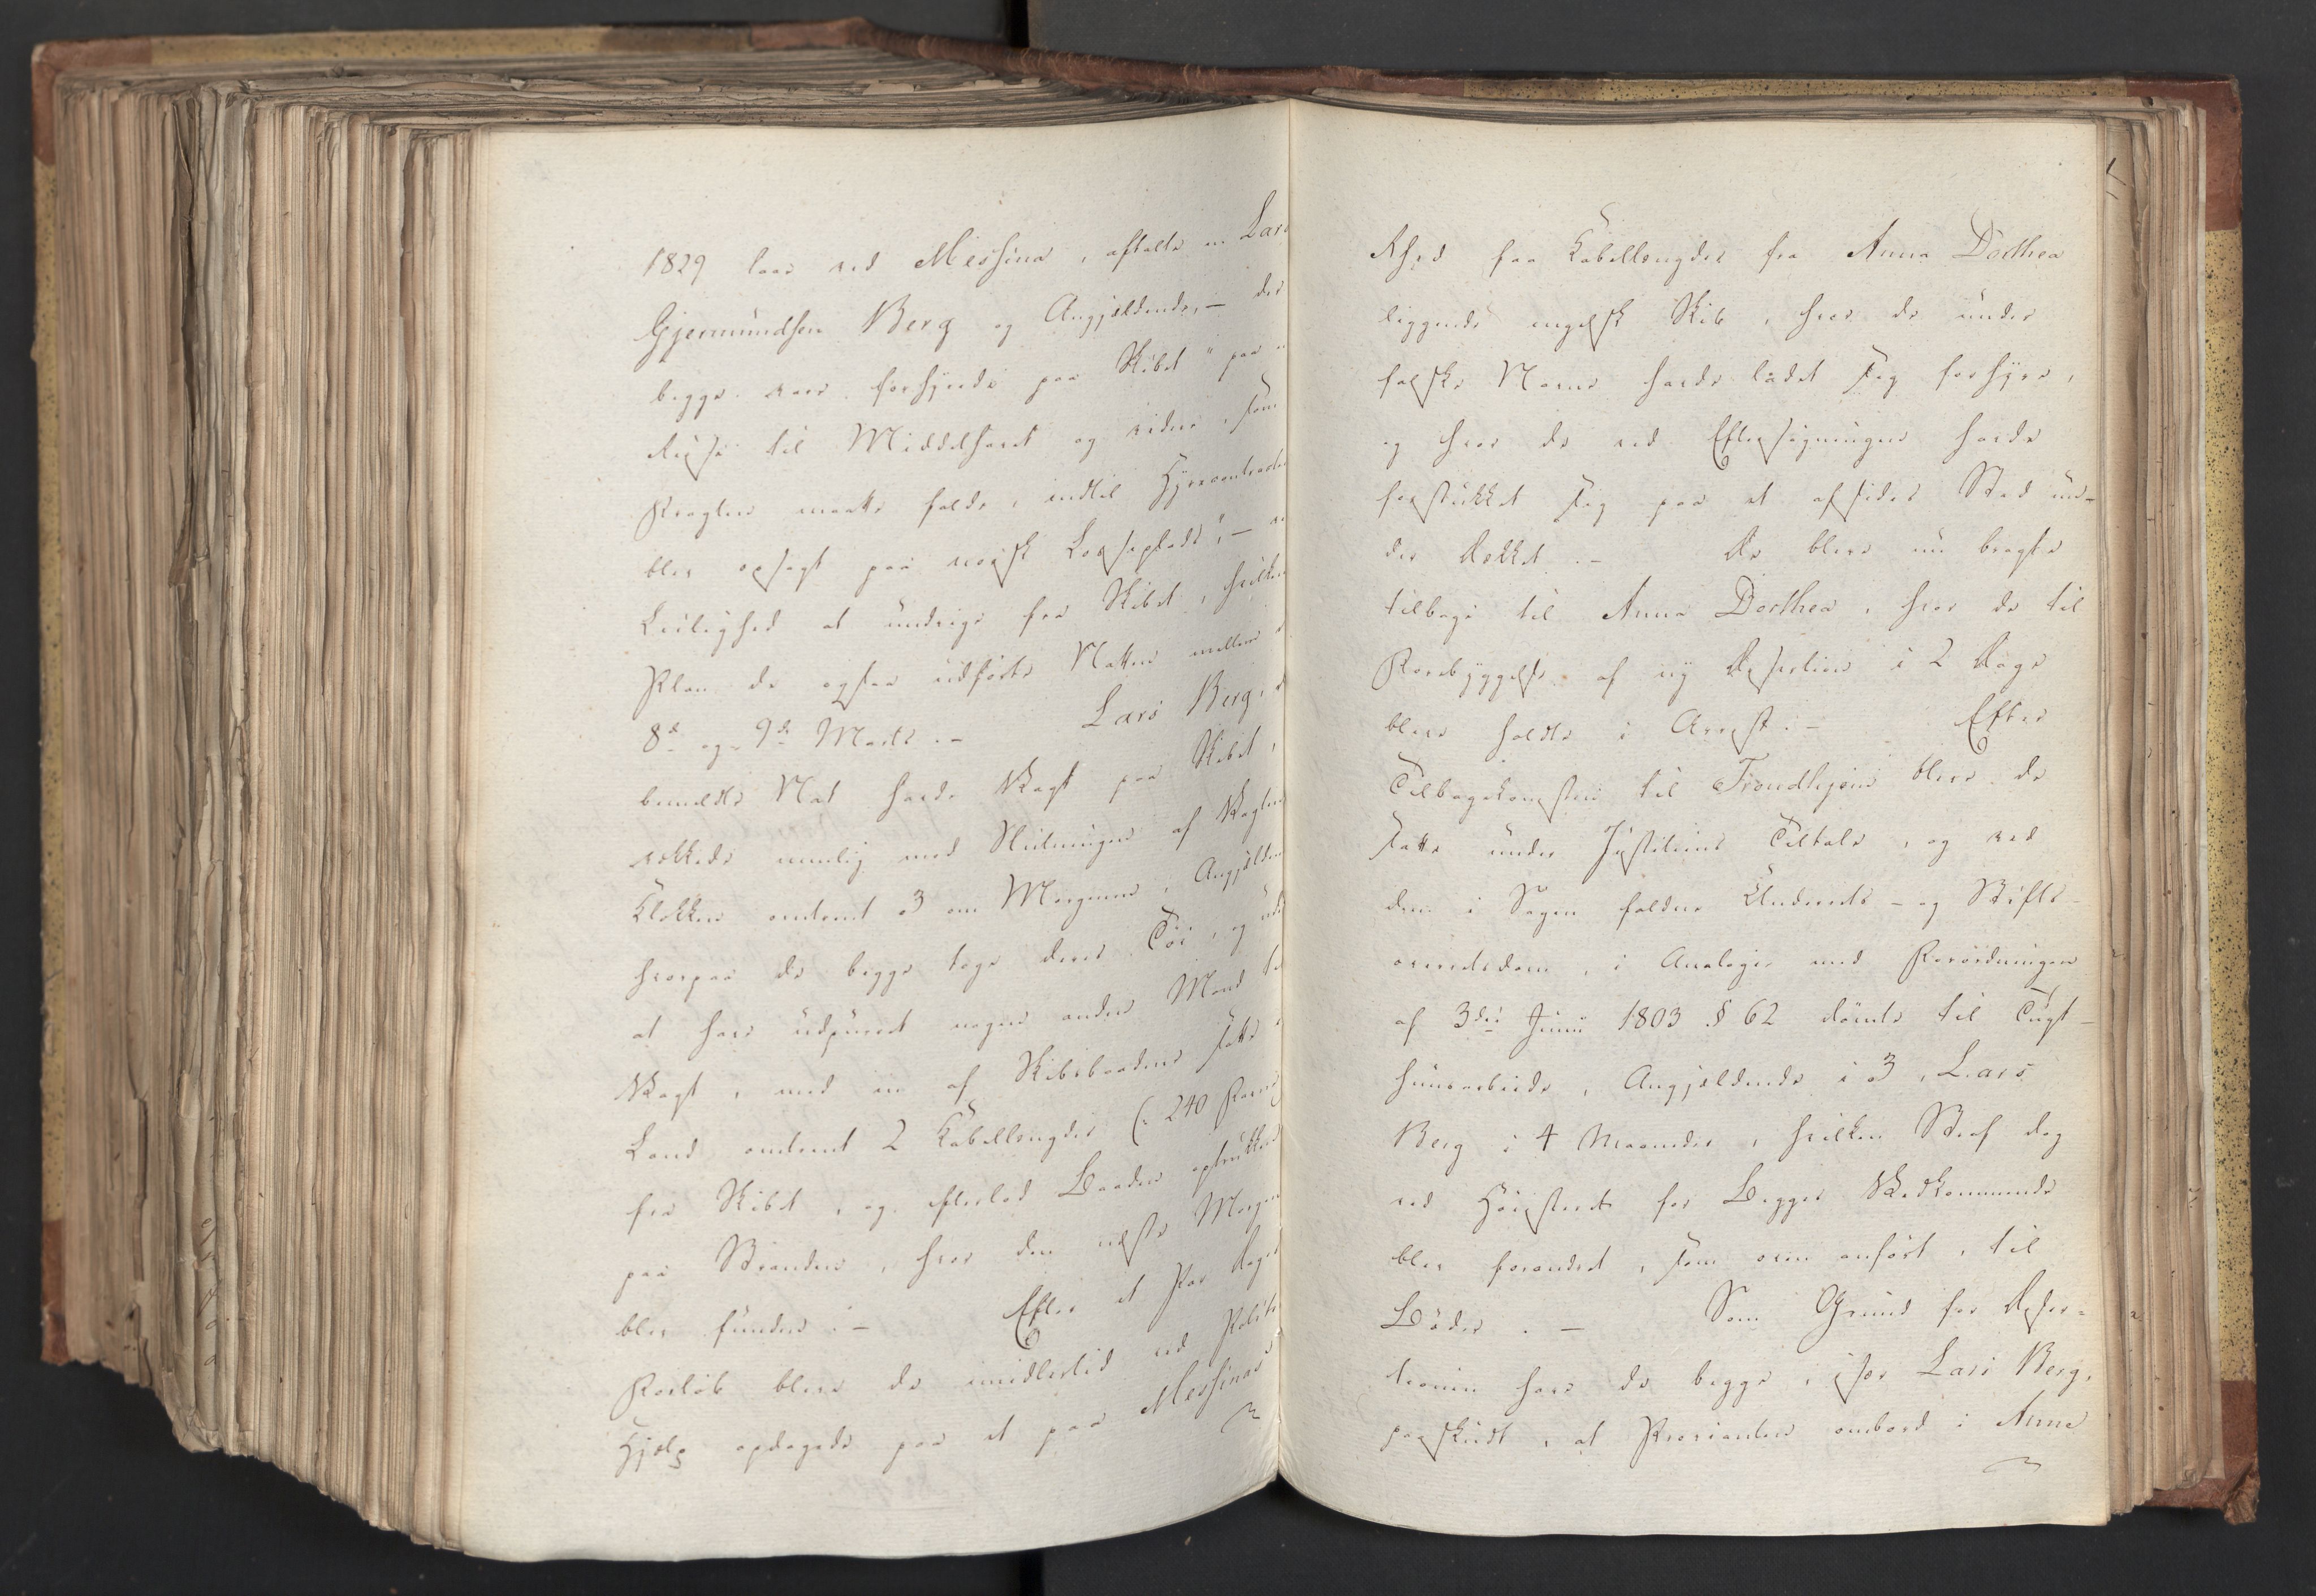 1829 laae ved Messina, aftalte en Lars
Gjermundsen Berg og Angjældende, – der
begge vare forhyrede paa Skibet "paa
Reise til Middelhavet og videre, som
Fragten maatte falde, indtil Hyrecontracten
blev opsagt paa norsk Losseplads", – ved
Leilighed at undvige fra Skibet, hvilken
Plan de ogsaa udførte Natten mellem
8de og 9de Marts. – Lars Berg,
bemeldte Nat havde Vagt paa Skibet,
vækkede nemlig ved Slutningen af Vagten
Klokken omtrent 3 om Morgenen, Angjældende
hvorpaa de begge toge deres Tøi, og uden
at have udpurret nogen anden Mand til
Vagt, med en af Skibsbaadene satte i
Land omtrent 2 Kabellængder (: 240 Favne
fra Skibet, og efterlod Baaden optrukken
paa Stranden, hvor den næste Morgen
blev funden. – Efter et Par Dages
Forløb bleve de imidlertid ved Politiets
Hjelp opdagede paa et paa Messinas
Rhed faa Kabellængder fra Anna Dorthea
liggende engelsk Skib, hvor de under
falske Navne havde ladet sig forhyre,
og hvor de ved Eftersøgningen havde
forstukket sig paa et afsides Sted un-
der Dækket. – De bleve nu bragte
tilbage til Anna Dorthea, hvor de til
Forebyggelse af ny Desertion i 2 Dage
bleve holdte i Arrest. – Efter
Tilbagekomsten til Trondhjem bleve de
satte under Justitiens Tiltale, og ved
den i Sagen faldne Underrets- og Stifts-
overretsdom, i Analogie med Forordningen
af 3die Junii 1803 § 62 dømte til Tugt-
huusarbeide, Angjældende i 3, Lars
Berg i 4 Maaneder, hvilken Straf dog
ved Høiesteret for Begges Vedkommende
blev forandret, som oven anført, til
Bøder. – Som Grund for Deser-
tionen have de begge, især Lars Berg,
paaskudt, at Provianten ombord i Anna